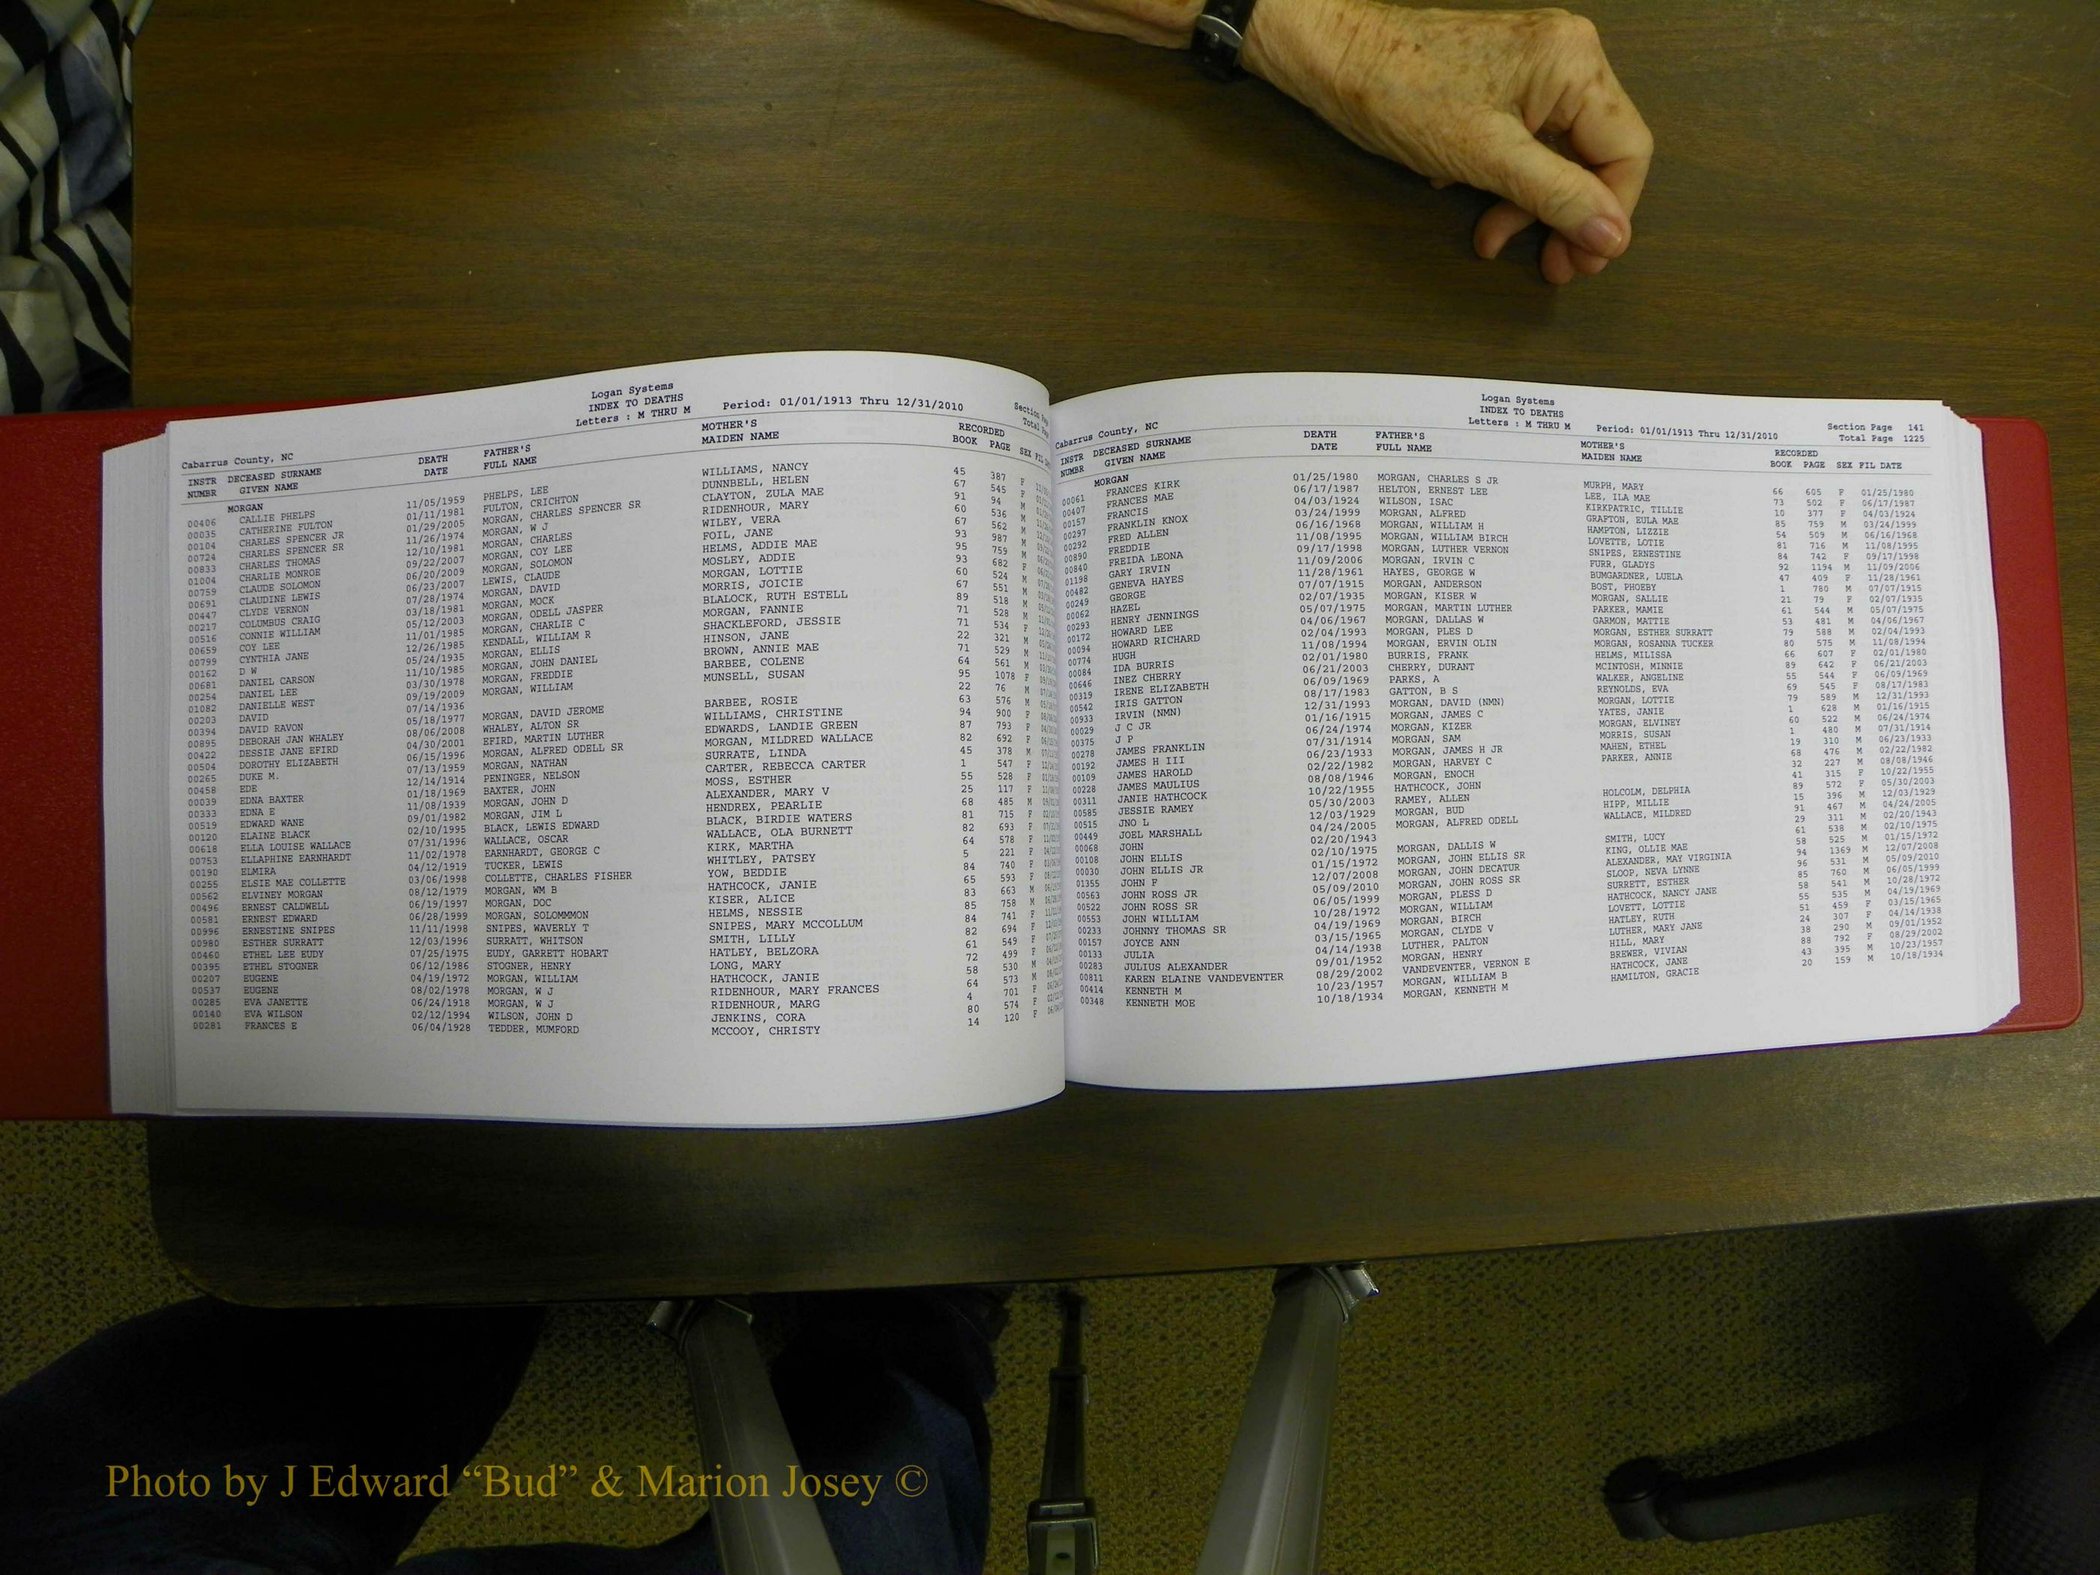 Logan Systems
INDEX TO DEATHS
Letters : M THRU M Period: 01/01/1913 Thru 12/31/2010
Cabarrus County, NC
INSTR DECEASED SURNAME DEATH FATHER'S MOTHER'S RECORDED
NUMBR GIVEN NAME DATE FULL NAME MAIDEN NAME BOOK PAGE SEX FIL
MORGAN
00406 CALLIE PHELPS 11/05/1959 PHELPS, LEE WILLIAMS, NANCY 45 387 F
00035 CATHERINE FULTON 01/11/1981 FULTON, CRICHTON DUNNBELL, HELEN 67 545 F
00104 CHARLES SPENCER JR 01/29/2005 MORGAN, CHARLES SPENCER SR CLAYTON, ZULA MAE 91 94 M
00724 CHARLES SPENCER SR 11/26/1974 MORGAN, W J RIDENHOUR, MARY 60 536 M
00833 CHARLES THOMAS 12/10/1981 MORGAN, CHARLES WILEY, VERA 67 562 M
01004 CHARLIE MONROE 09/22/2007 MORGAN, COY LEE FOIL, JANE 93 987 M
00759 CLAUDE SOLOMON 06/20/2009 MORGAN, SOLOMON HELMS, ADDIE MAE 95 759 M
00691 CLAUDINE LEWIS 06/23/2007 LEWIS, CLAUDE MOSLEY, ADDIE 93 682 F
00447 CLYDE VERNON 07/28/1974 MORGAN, DAVID MORGAN, LOTTIE 60 524 M
00217 COLUMBUS CRAIG 03/18/1981 MORGAN, MOCK MORRIS, JOICIE 67 551 M
00516 CONNIE WILLIAM 05/12/2003 MORGAN, ODELL JASPER BLALOCK, RUTH ESTELL 89 518 M
00659 COY LEE 11/01/1985 MORGAN, CHARLIE C MORGAN, FANNIE 71 528 M
00799 CYNTHIA JANE 12/26/1985 KENDALL, WILLIAM R SHACKLEFORD, JESSIE 71 534 F
00162 D W 05/24/1935 MORGAN, ELLIS HINSON, JANE 22 321 M
00681 DANIEL CARSON 11/10/1985 MORGAN, JOHN DANIEL BROWN, ANNIE MAE 71 529 M
00254 DANIEL LEE 03/30/1978 MORGAN, FREDDIE BARBEE, COLENE 64 561 M
01082 DANIELLE WEST 09/19/2009 MORGAN, WILLIAM MUNSELL, SUSAN 95 1078 F
00203 DAVID 07/14/1936 22 76 M
00394 DAVID RAVON 05/18/1977 MORGAN, DAVID JEROME BARBEE, ROSIE 63 576 M
00895 DEBORAH JAN WHALEY 08/06/2008 WHALEY, ALTON SR WILLIAMS, CHRISTINE 94 900 F
00422 DESSIE JANE EFIRD 04/30/2001 EFIRD, MARTIN LUTHER EDWARDS, LANDIE GREEN 87 793 F
00504 DOROTHY ELIZABETH 06/15/1996 MORGAN, ALFRED ODELL SR MORGAN, MILDRED WALLACE 82 692 F
00265 DUKE M. 07/13/1959 MORGAN, NATHAN SURRATE, LINDA 45 378 M
00458 EDE 12/14/1914 PENINGER, NELSON CARTER, REBECCA CARTER 1 547 F
00039 EDNA BAXTER 01/18/1969 BAXTER, JOHN MOSS, ESTHER 55 528 F
00333 EDNA E 11/08/1939 MORGAN, JOHN D ALEXANDER, MARY V 25 117 F
00519 EDWARD WANE 09/01/1982 MORGAN, JIM L HENDREX, PEARLIE 68 485 M
00120 ELAINE BLACK 02/10/1995 BLACK, LEWIS EDWARD BLACK, BIRDIE WATERS 81 715 F
00618 ELLA LOUISE WALLACE 07/31/1996 WALLACE, OSCAR WALLACE, OLA BURNETT 82 693 F
00753 ELLAPHINE EARNHARDT 11/02/1978 EARNHARDT, GEORGE C KIRK, MARTHA 64 578 F
00190 ELMIRA 04/12/1919 TUCKER, LEWIS WHITLEY, PATSEY 5 221 F
00255 ELSIE MAE COLLETTE 03/06/1998 COLLETTE, CHARLES FISHER YOW, BEDDIE 84 740 F
00562 ELVINEY MORGAN 08/12/1979 MORGAN, WM B HATHCOCK, JANIE 65 593 F
00496 ERNEST CALDWELL 06/19/1997 MORGAN, DOC KISER, ALICE 83 663 M
00581 ERNEST EDWARD 06/28/1999 MORGAN, SOLOMMMON HELMS, NESSIE 85 758 M
00996 ERNESTINE SNIPES 11/11/1998 SNIPES, WAVERLY T SNIPES, MARY MCCOLLUM 84 741 F
00980 ESTHER SURRATT 12/03/1996 SURRATT, WHITSON SMITH, LILLY 82 694 F
00460 ETHEL LEE EUDY 07/25/1975 EUDY, GARRETT HOBART HATLEY, BELZORA 61 549 F
00395 ETHEL STOGNER 06/12/1986 STOGNER, HENRY LONG, MARY 72 499 F
00207 EUGENE 04/19/1972 MORGAN, WILLIAM HATHCOCK, JANIE 58 530 M
00537 EUGENE 08/02/1978 MORGAN, W J RIDENHOUR, MARY FRANCES 64 573 M
00285 EVA JANETTE 06/24/1918 MORGAN, W J RIDENHOUR, MARG 4 701 F
00140 EVA WILSON 02/12/1994 WILSON, JOHN D JENKINS, CORA 80 574 F
00281 FRANCES E 06/04/1928 TEDDER, MUMFORD MCCOOY, CHRISTY 14 120 F
Logan Systems
INDEX TO DEATHS
Letters : M THRU M Period: 01/01/1913 Thru 12/31/2010
Section Page 141
Total Page 1225
Cabarrus County, NC
INSTR DECEASED SURNAME DEATH FATHER'S MOTHER'S RECORDED
NUMBR GIVEN NAME DATE FULL NAME MAIDEN NAME BOOK PAGE SEX FIL DATE
MORGAN
00061 FRANCES KIRK 01/25/1980 MORGAN, CHARLES S JR MURPH, MARY 66 605 F 01/25/1980
00407 FRANCES MAE 06/17/1987 HELTON, ERNEST LEE LEE, ILA MAE 73 502 F 06/17/1987
00157 FRANCIS 04/03/1924 WILSON, ISAC KIRKPATRIC, TILLIE 10 377 F 04/03/1924
00297 FRANKLIN KNOX 03/24/1999 MORGAN, ALFRED GRAFTON, EULA MAE 85 759 M 03/24/1999
00292 FRED ALLEN 06/16/1968 MORGAN, WILLIAM H HAMPTON, LIZZIE 54 509 M 06/16/1968
00890 FREDDIE 11/08/1995 MORGAN, WILLIAM BIRCH LOVETTE, LOTIE 81 716 M 11/08/1995
00840 FREIDA LEONA 09/17/1998 MORGAN, LUTHER VERNON SNIPES, ERNESTINE 84 742 F 09/17/1998
01198 GARY IRVIN 11/09/2006 MORGAN, IRVIN C FURR, GLADYS 92 1194 M 11/09/2006
00482 GENEVA HAYES 11/28/1961 HAYES, GEORGE W BUMGARDNER, LUELA 47 409 F 11/28/1961
00249 GEORGE 07/07/1915 MORGAN, ANDERSON BOST, PHOEBY 1 780 M 07/07/1915
00062 HAZEL 02/07/1935 MORGAN, KISER W MORGAN, SALLIE 21 79 F 02/07/1935
00293 HENRY JENNINGS 05/07/1975 MORGAN, MARTIN LUTHER PARKER, MAMIE 61 544 M 05/07/1975
00172 HOWARD LEE 04/06/1967 MORGAN, DALLAS W GARMON, MATTIE 53 481 M 04/06/1967
00094 HOWARD RICHARD 02/04/1993 MORGAN, PLES D MORGAN, ESTHER SURRATT 79 588 M 02/04/1993
00774 HUGH 11/08/1994 MORGAN, ERVIN OLIN MORGAN, ROSANNA TUCKER 80 575 M 11/08/1994
00084 IDA BURRIS 02/01/1980 BURRIS, FRANK HELMS, MILISSA 66 607 F 02/01/1980
00646 INEZ CHERRY 06/21/2003 CHERRY, DURANT MCINTOSH, MINNIE 89 642 F 06/21/2003
00319 IRENE ELIZABETH 06/09/1969 PARKS, A WALKER, ANGELINE 55 544 F 06/09/1969
00542 IRIS GATTON 08/17/1983 GATTON, B S REYNOLDS, EVA 69 545 F 08/17/1983
00933 IRVIN (NMN) 12/31/1993 MORGAN, DAVID (NMN) MORGAN, LOTTIE 79 589 M 12/31/1993
00029 J C JR 01/16/1915 MORGAN, JAMES C YATES, JANIE 1 628 M 01/16/1915
00375 J P 06/24/1974 MORGAN, KIZER MORGAN, ELVINEY 60 522 M 06/24/1974
00278 JAMES FRANKLIN 07/31/1914 MORGAN, SAM MORRIS, SUSAN 1 480 M 07/31/1914
00192 JAMES H III 06/23/1933 MORGAN, JAMES H JR MAHEN, ETHEL 19 310 M 06/23/1933
00109 JAMES HAROLD 02/22/1982 MORGAN, HARVEY C PARKER, ANNIE 68 476 M 02/22/1982
00228 JAMES MAULIUS 08/08/1946 MORGAN, ENOCH 32 227 M 08/08/1946
00311 JANIE HATHCOCK 10/22/1955 HATHCOCK, JOHN 41 315 F 10/22/1955
00585 JESSIE RAMEY 05/30/2003 RAMEY, ALLEN HOLCOLM, DELPHIA 89 572 F 05/30/2003
00515 JNO L 12/03/1929 MORGAN, BUD HIPP, MILLIE 15 396 M 12/03/1929
00449 JOEL MARSHALL 04/24/2005 MORGAN, ALFRED ODELL WALLACE, MILDRED 91 467 M 04/24/2005
00068 JOHN 02/20/1943 29 311 M 02/20/1943
00108 JOHN ELLIS 02/10/1975 MORGAN, DALLIS W SMITH, LUCY 61 538 M 02/10/1975
00030 JOHN ELLIS JR 01/15/1972 MORGAN, JOHN ELLIS SR KING, OLLIE MAE 58 525 M 01/15/1972
01355 JOHN F 12/07/2008 MORGAN, JOHN DECATUR ALEXANDER, MAY VIRGINIA 94 1369 M 12/07/2008
00563 JOHN ROSS JR 05/09/2010 MORGAN, JOHN ROSS SR SLOOP, NEVA LYNNE 96 531 M 05/09/2010
00522 JOHN ROSS SR 06/05/1999 MORGAN, PLESS D SURRETT, ESTHER 85 760 M 06/05/1999
00553 JOHN WILLIAM 10/28/1972 MORGAN, WILLIAM HATHCOCK, NANCY JANE 58 541 M 10/28/1972
00233 JOHNNY THOMAS SR 04/19/1969 MORGAN, BIRCH LOVETT, LOTTIE 55 535 M 04/19/1969
00157 JOYCE ANN 03/15/1965 MORGAN, CLYDE V HATLEY, RUTH 51 459 F 03/15/1965
00133 JULIA 04/14/1938 LUTHER, PALTON LUTHER, MARY JANE 24 307 F 04/14/1938
00283 JULIUS ALEXANDER 09/01/1952 MORGAN, HENRY HILL, MARY 38 290 M 09/01/1952
00811 KAREN ELAINE VANDEVENTER 08/29/2002 VANDEVENTER, VERNON E BREWER, VIVIAN 88 792 F 08/29/2002
00414 KENNETH M 10/23/1957 MORGAN, WILLIAM B HATHCOCK, JANE 43 395 M 10/23/1957
00348 KENNETH MOE 10/18/1934 MORGAN, KENNETH M HAMILTON, GRACIE 20 159 M 10/18/1934
Photo by J Edward “Bud” & Marion Josey ©